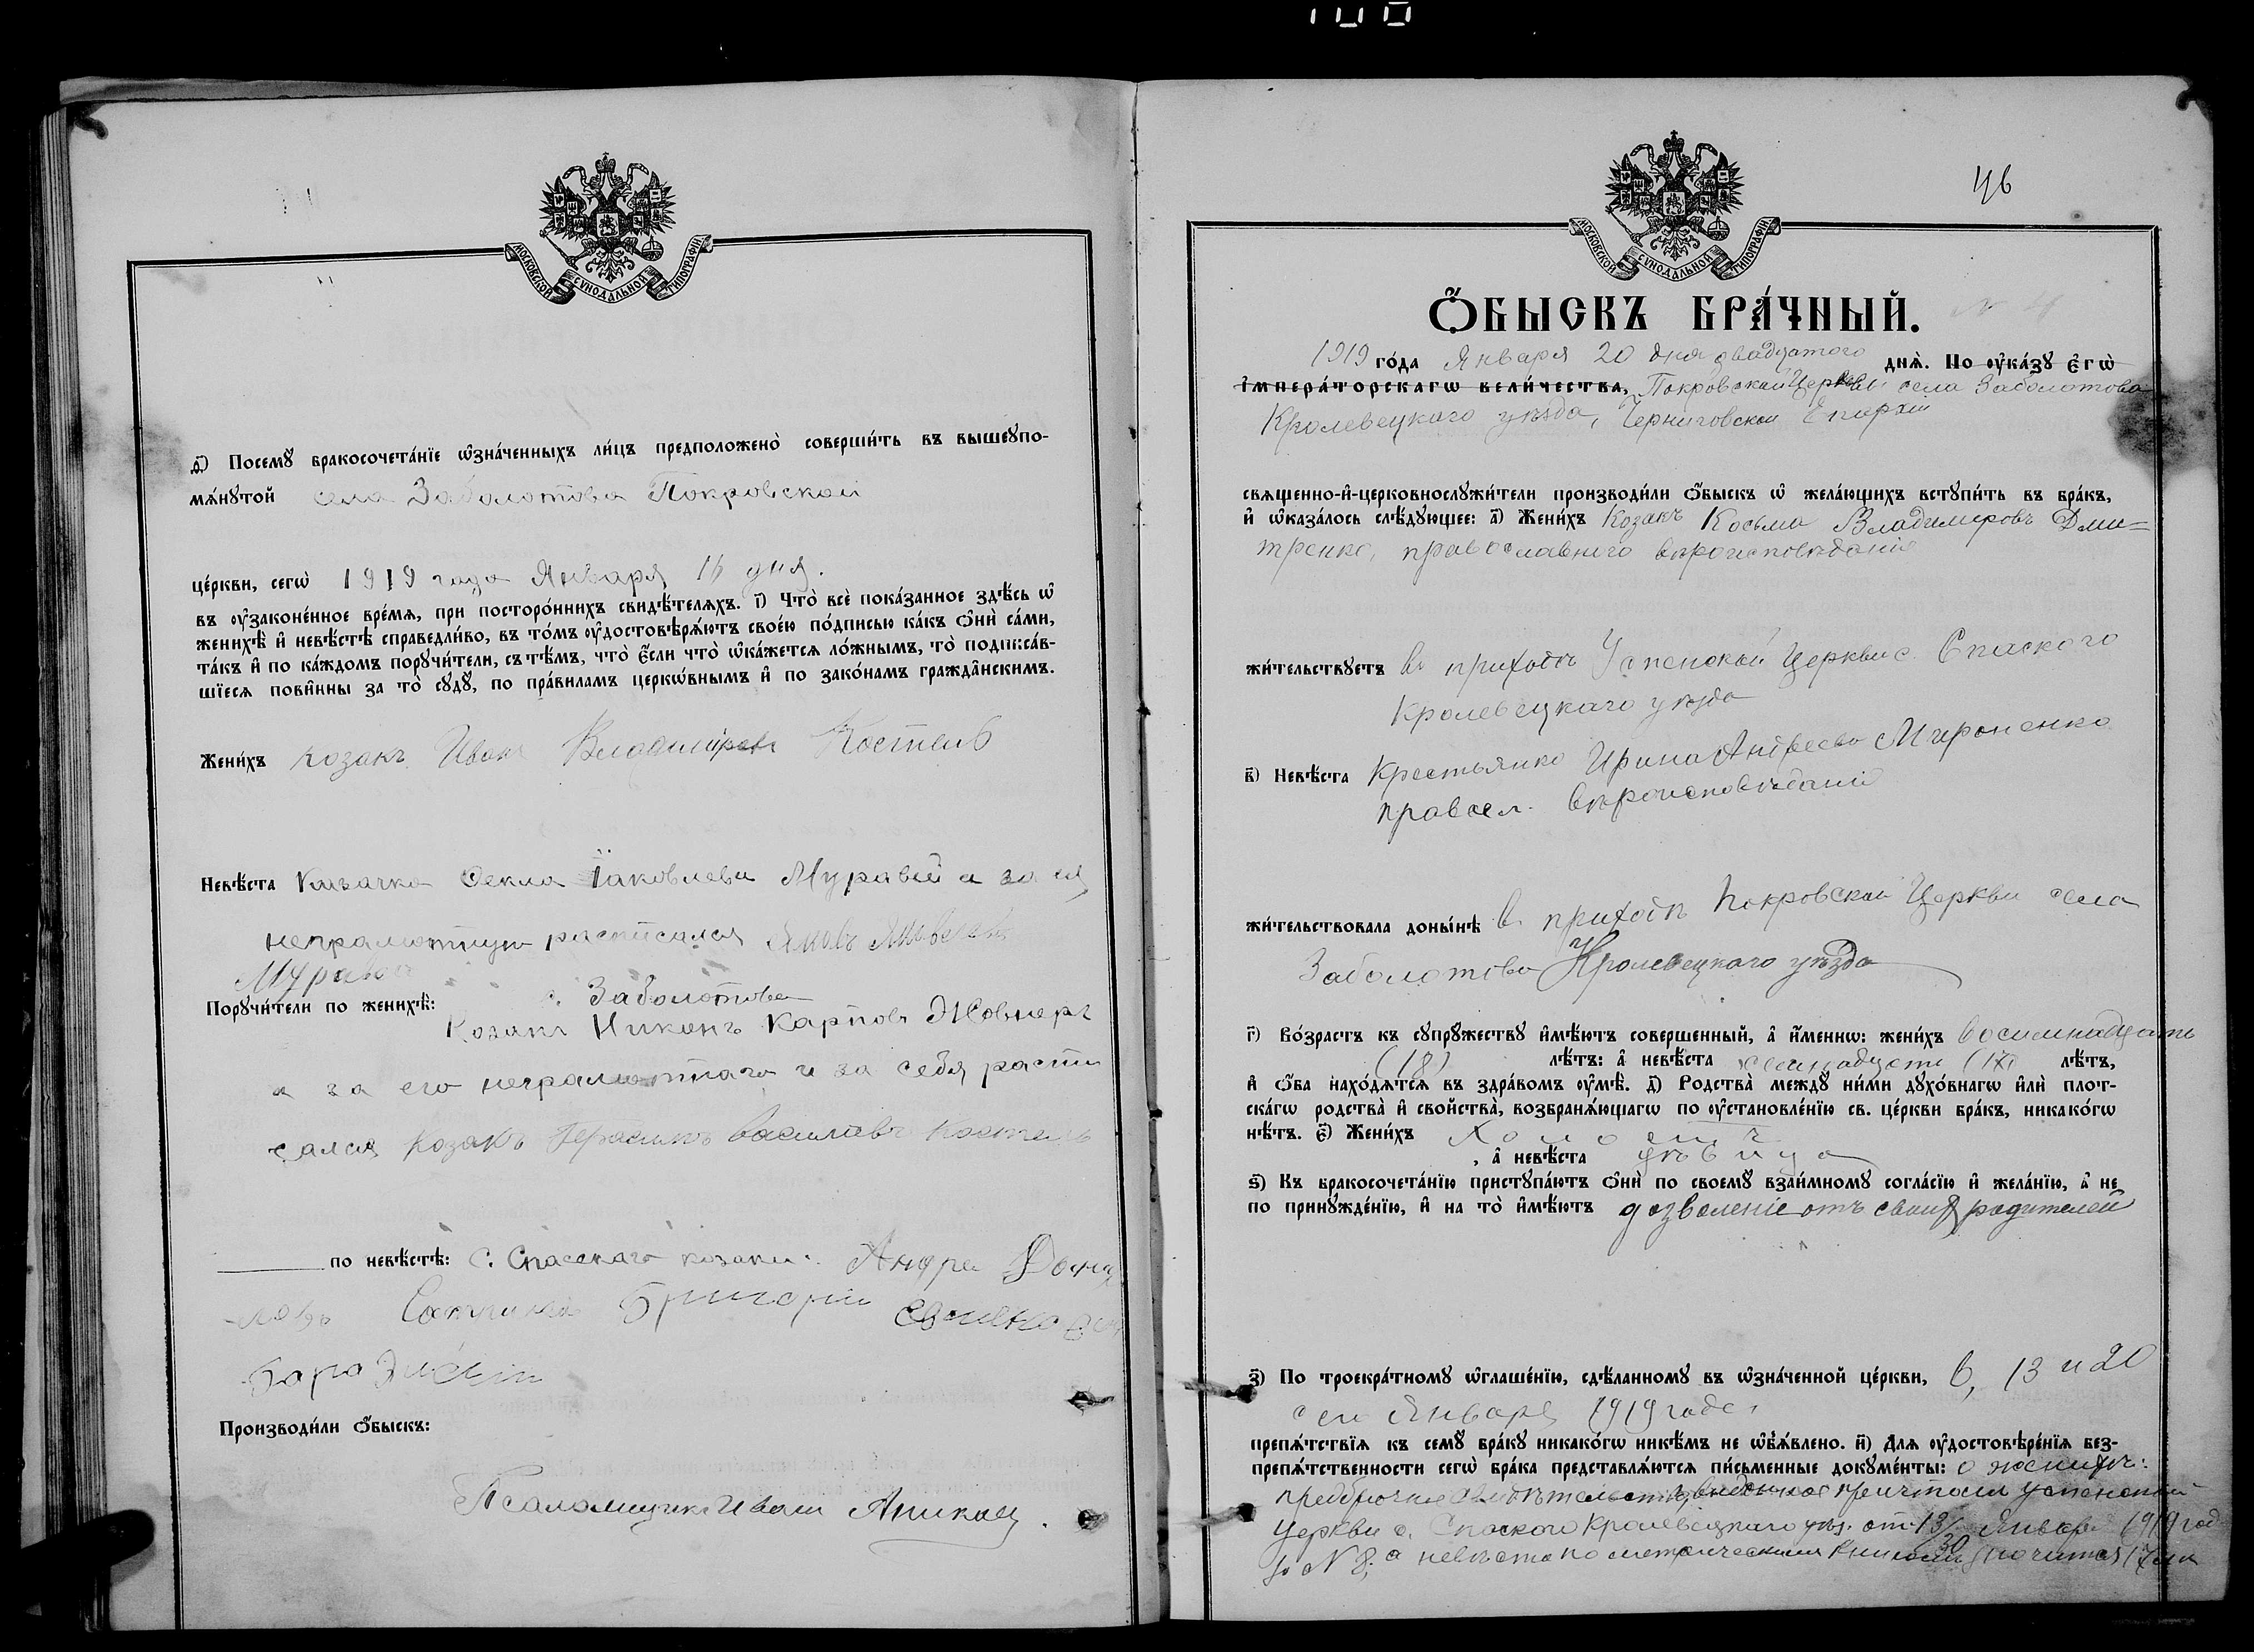 МОСКОВСКОЙ СѴНОДАЛЬНОЙ ТИПОГРАФІИ
д҃) Посемꙋ̀ бракосочета́нїе ѡ҆зна́ченныхъ ли́цъ предположено̀ соверши́ть въ вышеꙋпо-
мѧ́нꙋтой села Заболотова Покровской
це́ркви, сегѡ̀ 1919 года Января 16 дня.
въ ᲂу҆законе́нное вре́мѧ, при посторо́ннихъ свидѣ́телѧхъ. і҃) Что̀ всѐ пока́занное здѣ́сь ѡ҆
женихѣ̀ и҆ невѣ́стѣ справедли́во, въ то́мъ ᲂу҆достовѣрѧ́ютъ свое́ю по́дписью ка́къ ѻ҆нѝ са́ми,
та́къ и҆ по ка́ждомъ порꙋчи́тели, съ тѣ́мъ, что̀ є҆́сли что̀ ѡ҆ка́жетсѧ ло́жнымъ, то̀ подписа́в-
шїесѧ пови́нны за то̀ сꙋдꙋ̀, по пра́виламъ церкѡ́внымъ и҆ по зако́намъ гражда̑нскимъ.
Жени́хъ козакъ Иванъ Владимировъ Костень
Невѣ́ста Казачка Ѳекла Іаковлева Муравей а за ея
неграмотную расписался Яковъ
Муравей
Порꙋчи́тели по женихѣ̀: с. Заболотова
Козакъ Никонъ Карповъ Жовнеръ
а за его неграмотнаго и за себя распи
сался козакъ Герасимъ Василіевъ Костень
по невѣ́стѣ: с. Спасскаго козаки: Андрей
Григорій
Производи́ли ѻ҆́быскъ:
Псаломщикъ Иванъ
46
МОСКОВСКОЙ СѴНОДАЛЬНОЙ ТИПОГРАФІИ
Ѻ҆́БЫСКЪ БРА́ЧНЫЙ. № 4
1919 го́да Января 20 дня двадцатого днѧ̀. По ᲂу҆ка́зꙋ є҆гѡ̀
і҆мпера́торскагѡ вели́чества, Покровской Церкви села Заболотова
Кролевецкаго уѣзда, Черниговской Епархіи
свѧщенно-и҆-церковнослꙋжи́тели производи́ли ѻ҆́быскъ ѡ҆ жела́ющихъ встꙋпи́ть въ бра́къ,
и҆ ѡ҆каза́лось слѣ́дꙋющее: а҃) Жени́хъ Козакъ Косьма Владимеровъ Дми=
тренко, православнаго вѣроисповѣданія
жи́тельствꙋетъ въ приходѣ Успенской Церкви с. Спаского
Кролевецкаго уѣзда
в҃) Невѣ́ста Крестьянка Ирина Андреева Мироненко
правосл. вѣроисповѣданія
жи́тельствовала доны́нѣ въ приходѣ Покровской Церкви села
Заболотова Кролевецкаго уѣзда
г҃) Во́зрастъ къ сꙋпрꙋ́жествꙋ и҆мѣ́ютъ совершенный, а҆ и҆́меннѡ: жени́хъ восемнадцать
(18) лѣ́тъ: а҆ невѣ́ста семнадцать (17) лѣ́тъ,
и҆ ѻ҆́ба нахо́дѧтсѧ въ здра́вомъ ᲂу҆мѣ̀. д҃) Родства̀ междꙋ̀ ни́ми дꙋхо́внагѡ и҆лѝ плот-
ска́гѡ родства̀ и҆ свойства̀, возбранѧ́ющагѡ по ᲂу҆становле́нїю св. це́ркви бра́къ, никако́гѡ
нѣ́тъ. є҃) Жени́хъ Холостъ
, а҆ невѣ́ста дѣвица
ѕ҃) Къ бракосочета́нїю пристꙋпа́ютъ ѻ҆нѝ по своемꙋ̀ взаи́мномꙋ согла́сїю и҆ жела́нїю, а҆ не
по принꙋжде́нїю, и҆ на то̀ и҆мѣ́ютъ дозволеніе отъ своихъ родителей
з҃) По троекра́тномꙋ ѡ҆глаше́нїю, сдѣ́ланномꙋ въ ѡ҆зна́ченной це́ркви, 6, 13 и 20
сего Января 1919 года,
препѧ́тствїѧ къ семꙋ̀ бра́кꙋ никако́гѡ никѣ́мъ не ѡ҆б̾ѧ́влено. и҃) Длѧ ᲂу҆достовѣре́нїѧ без-
препѧ́тственности сегѡ̀ бра́ка представлѧ́ютсѧ пи́сьменные докꙋме́нты: о женихѣ:
предбрачное свидѣтельство, выданное причтомъ Успенской
Церкви с. Спаского Кролевецкаго уѣз. от 13/30 Января 1919 год
за № 8, а невѣста по метрическимъ книгамъ